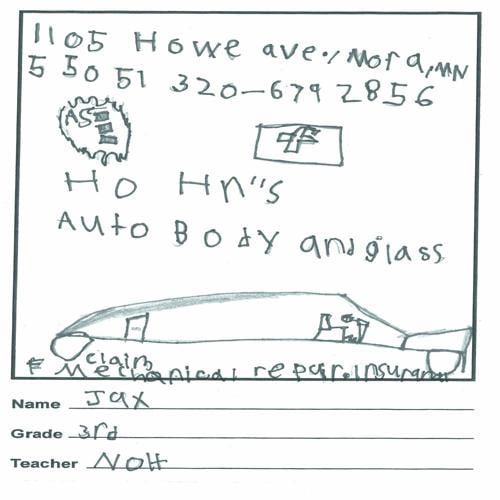 1105 Howe ave., Mora, MN
55051 320-679 2856
ASE
HO Hn"s
Auto Body and glass
claim
& Mechanical repair. Insurance
Name Jax
Grade 3rd
Teacher Nott